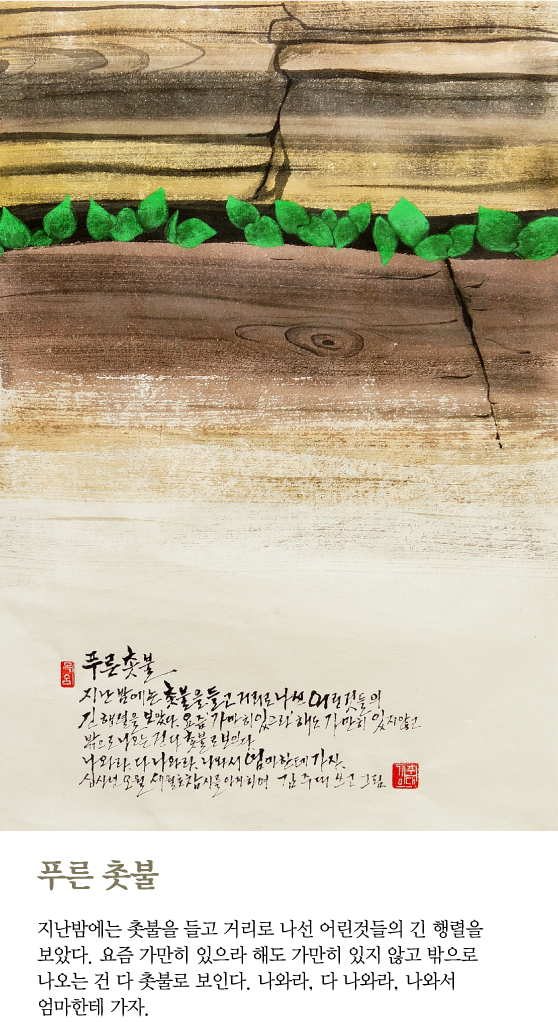 푸른 촛불
지난 밤에는 촛불을 들고 거리로 나선 어린것들의
긴 행렬을 보았다. 요즘 가만히 있으라 해도 가만히 있지 않고
밖으로 나오는 건 다 촛불로 보인다.
나와라. 다 나와라. 나와서 엄마한테 가자.
십사년 오월 세월호참사를 안타까워하며 김주대 쓰고 그림
푸른 촛불
지난밤에는 촛불을 들고 거리로 나선 어린것들의 긴 행렬을
보았다. 요즘 가만히 있으라 해도 가만히 있지 않고 밖으로
나오는 건 다 촛불로 보인다. 나와라, 다 나와라, 나와서
엄마한테 가자.